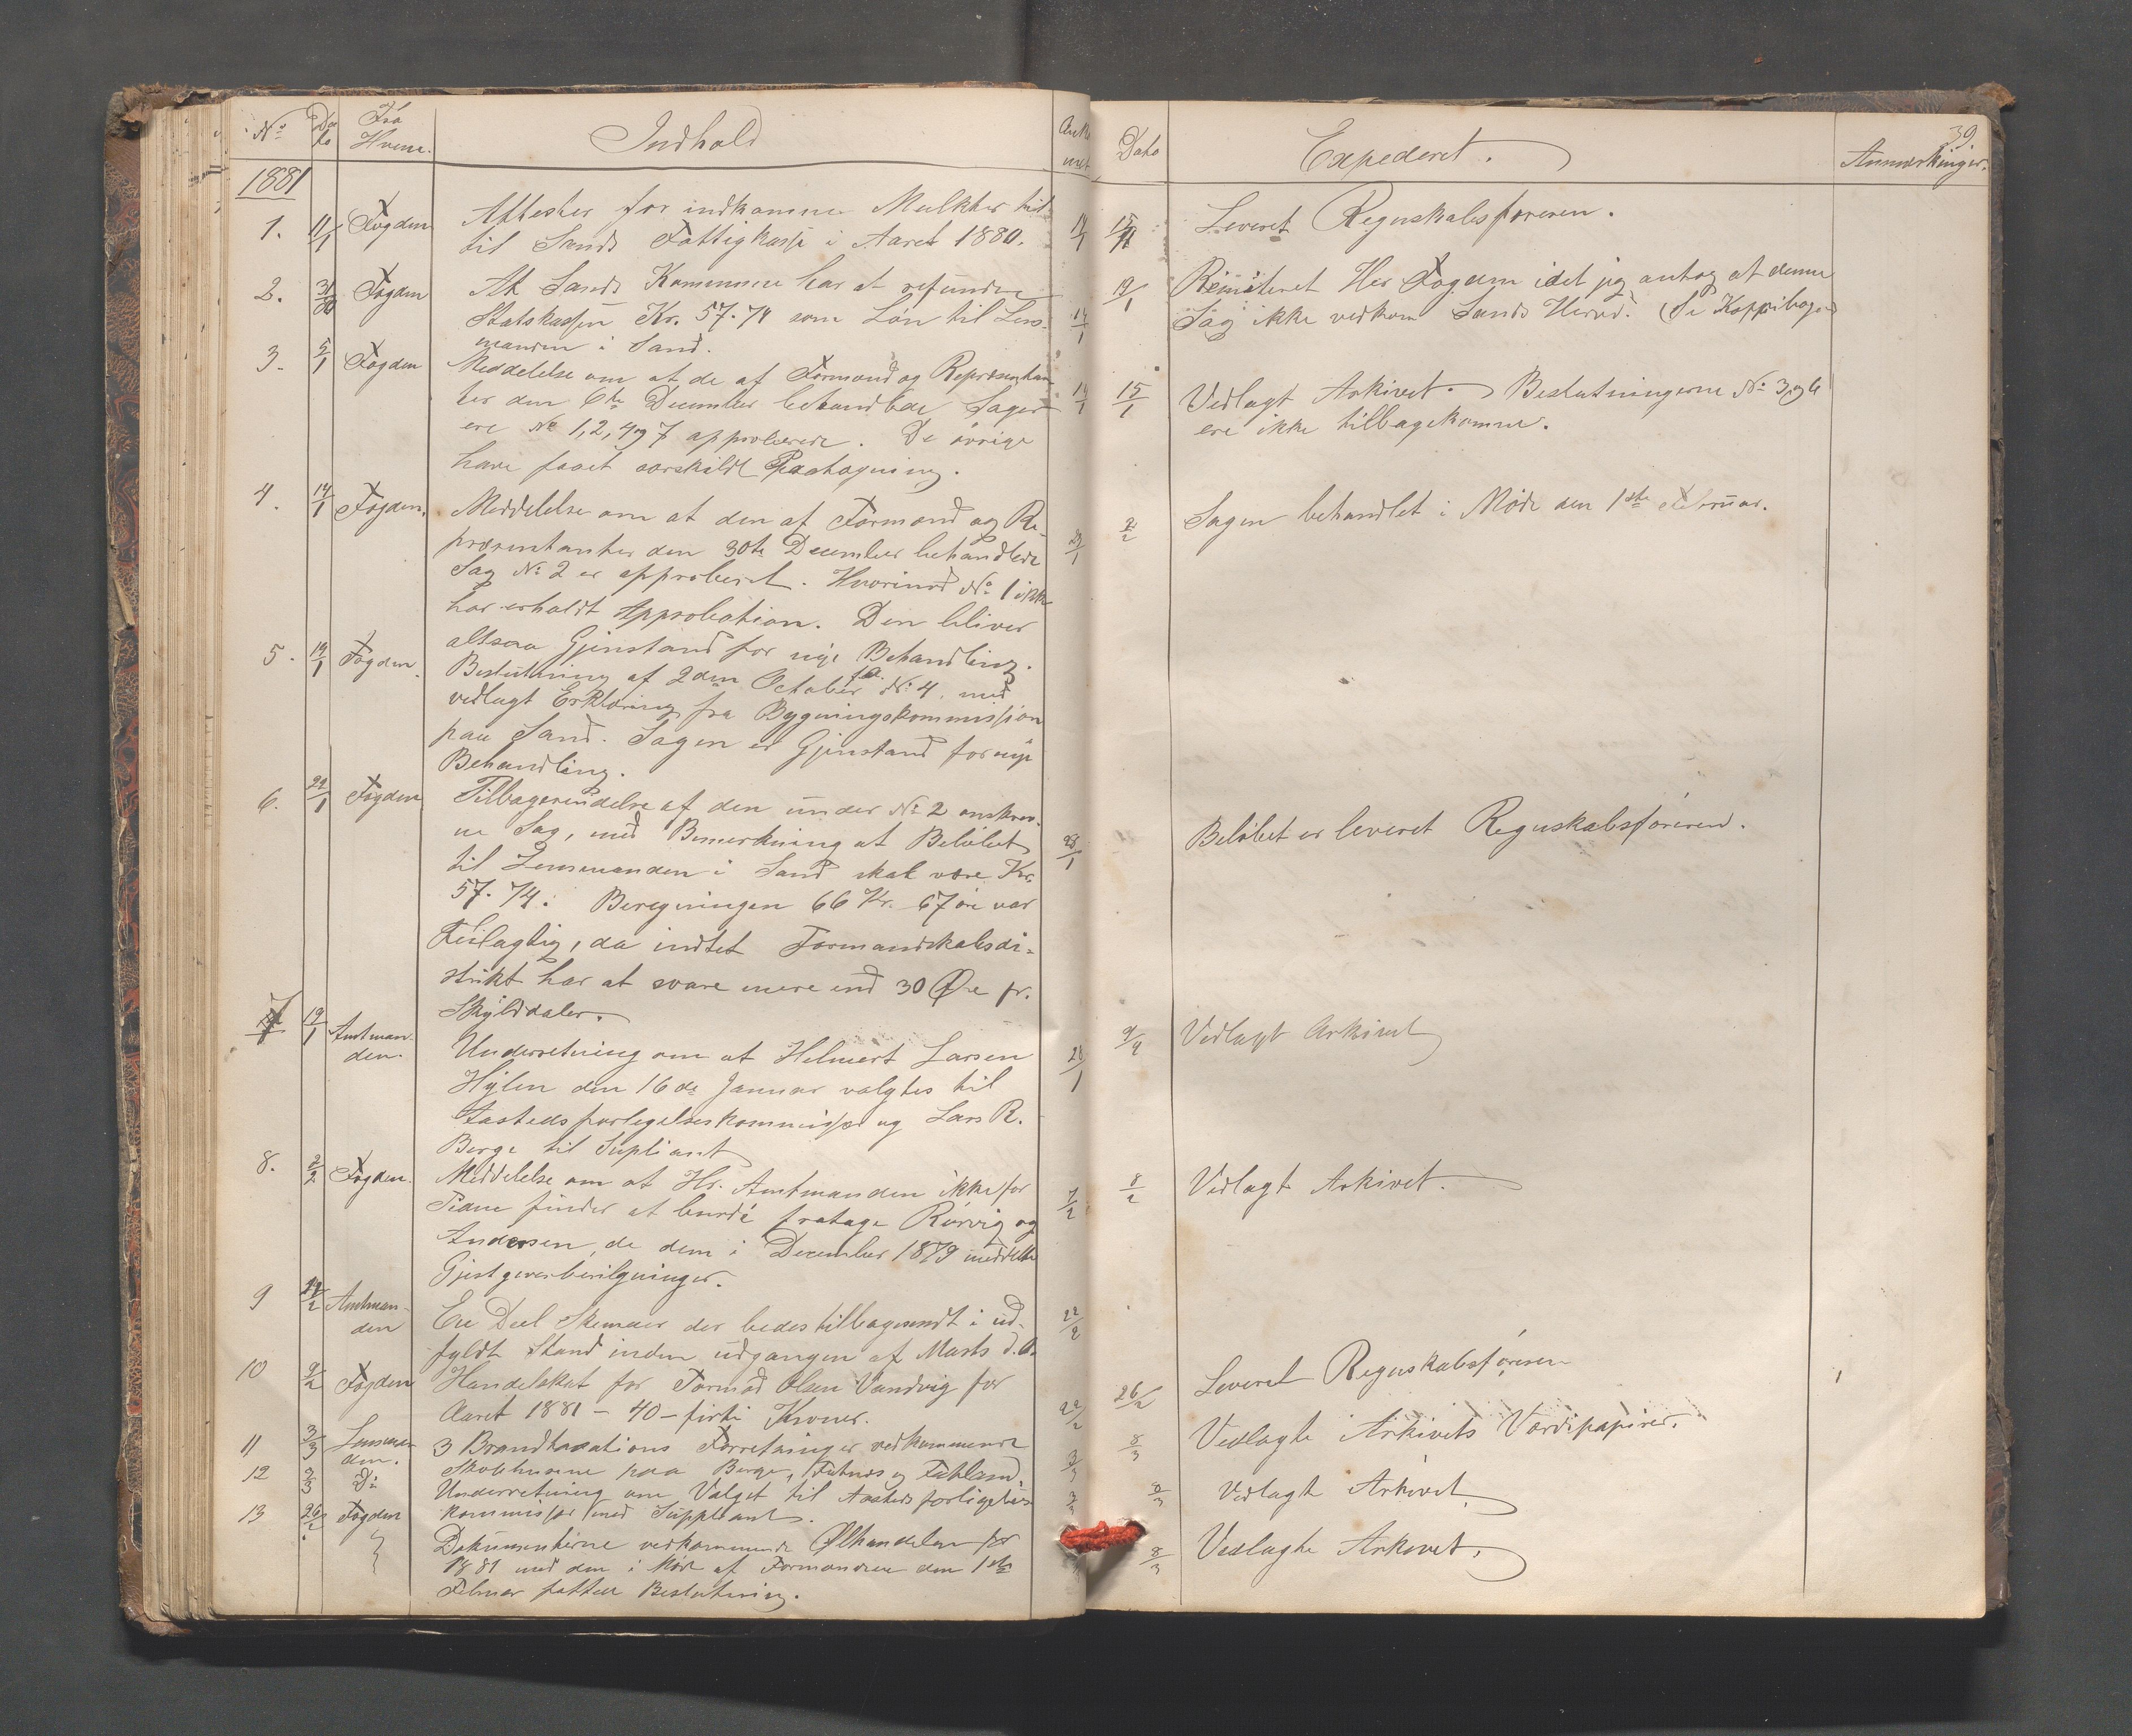 No Dato Fra Hvem. Indhold Ankomst
1881
1. 11/1 Fogden Attester for indkomne Mulkter til 14/1
til Sands Fattigkasse i Aaret 1880.
2. 31/ Fogden At Sands Kommune har at refundere
Statskassen Kr. 57.74 som Løn til Lens- 14/1
manden i Sand.
3. 5/1 Fogden Meddelelse om at de af Formænd og Repræsentan 14/1
ter den 6te December behandlede Sager
ere No 1, 2, 4 og 7 approberede. De øvrige
have faaet særskildt Paategning.
4. 14/1 Fogden. Meddelelse om at den af Formænd og Re-
præsentanter den 30te December behandlede 23/1
Sag No 2 er approberet. Hvorimod No 1 ikke
har erholdt Approbation. Den bliver
altsaa Gjenstand for nye Behandling.
5. 19/1 Fogden. Beslutning af 2den October f.a. No 4. med
vedlagt Erklæring fra Bygningskommission
paa Sand. Sagen er Gjenstand for nye
Behandling.
6. 22/1 Fogden Tilbagesendelse af den under No 2 anskrev-
ne Sag, med Bemerkning at Beløbet 28/1
til Lensmanden i Sand skal være Kr.
57.74. Beregningen 66 Kr. 67 øre var
Feilagtig, da indtet Formandskabsdi-
strikt har at svare mere end 30 Øre pr.
Skylddaler.
7 19/1 Amtman-
den. Underretning om at Helmert Larsen 28/1
Hylen den 16de Januar valgtes til
Aastedsforlegelseskommissær og Lars R.
Berge til Supliant
8. 2/2 Fogden. Meddelelse om at Hr. Amtmanden ikke for
Tiden finder at burde fratage Rørvig og 7/2
Andersen, de dem i December 1879 meddelte
Gjestgiverbevilgninger.
9 /2 Amtman-
den En Deel Skemaer der bedes tilbagesendt i ud- 22/2
fyldt Stand inden udgangen af Marts d.A.
10 9/2 Fogden Handelskat for Tormod Olsen Vandvig for
Aaret 1881 - 40 - firti Kroner. 22/2
11 3/3 Lensman
den. 3 Brandtaxations Forretninger vedkommende
Skolehusene paa Berge, Fatnes og Fuhland. 3/3
12 3/3 Do Underretning om Valget til Aastedsforligelses
kommissær med Suppleant. 3/3
13 26/2 Fogden Dokumenterne vedkommende Ølhandelen for
1881 med den i Møde af Formændene den 1ste
Februar fattede Beslutning.
39
Dato Expederet. Anmærkninger.
15/1 Leveret Regnskabsføreren.
19/1 Remiteret Her Fogden idet jeg antog at denne
Sag ikke vedkom Sands Herred. (Se Koppibogen
15/1 Vedlagt Arkivet. Beslutningerne No 3 og 6
ere ikke tilbagekomne.
2/2 Sagen behandlet i Møde den 1ste Februar.
Beløbet er leveret Regnskabsføreren.
9/4 Vedlagt Arkivet
8/2 Vedlagt Arkivet.
26/2 Leveret Regnskabsføreren
8/3 Vedlagte Arkivets Værdipapirer.
8/3 Vedlagte Arkivet
8/3 Vedlagte Arkivet.